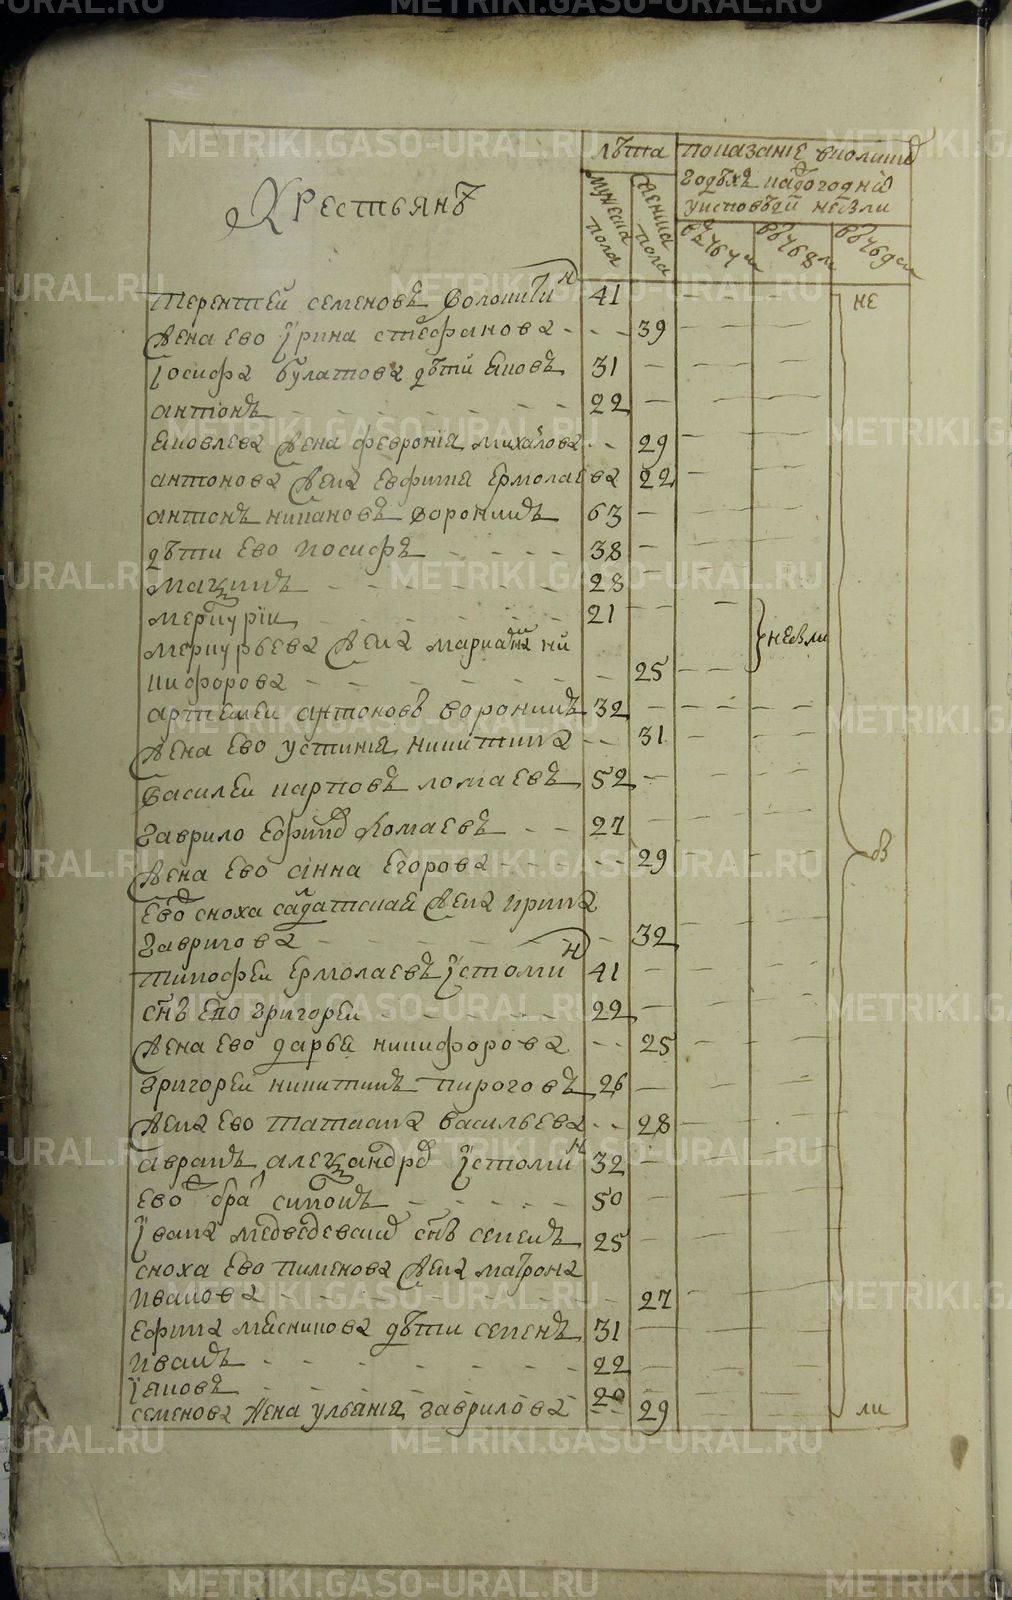 METRIKI.GASO-URAL.RU
Крестьянъ
лѣта
показанїе сколиких
годѣхъ кадогодни
уисповѣди небыли
мужеска пола
женска пола
въ 767 м
въ 768 м
въ 769 м
терентеи семеновъ волокитин 41 не
жена ево ірина стефанова 39
іосифа булатова дѣти яковъ 31
антонъ 22
яковлева жена феврониа михаилова 29
антонова жена евфимиа ермолаева 22
антонъ никановъ воронинъ 63
дѣти ево иосифъ 38
мазимъ 28
меркурїи 21
меркурьева жена мариана ни небыли
кифорова 25
артемеи антоновъ воронинъ 32
жена ево устиниа никитина 31
василеи карповъ ломаевъ 52
гаврило ефимов ломаевъ 27
жена ево анна егорова 29 бы
ево сноха салдатская жена ирина
гаврилова 32
тимофеи ермолаевъ устюмин 41
снъ ево григореи 22
жена ево дарья никифорова 25
григореи никитинъ пироговъ 26
жена ево татиана васильева 28
аврамъ алеѯандров устюмин 32
ево брат симонъ 50
івана медведевских снъ семенъ 25
сноха ево пименова жена матрона
иванова 27
ефима мясникова дѣти семенъ 31
иванъ 22
іаковъ 20
семенова жена ульяния гаврилова 29 ли